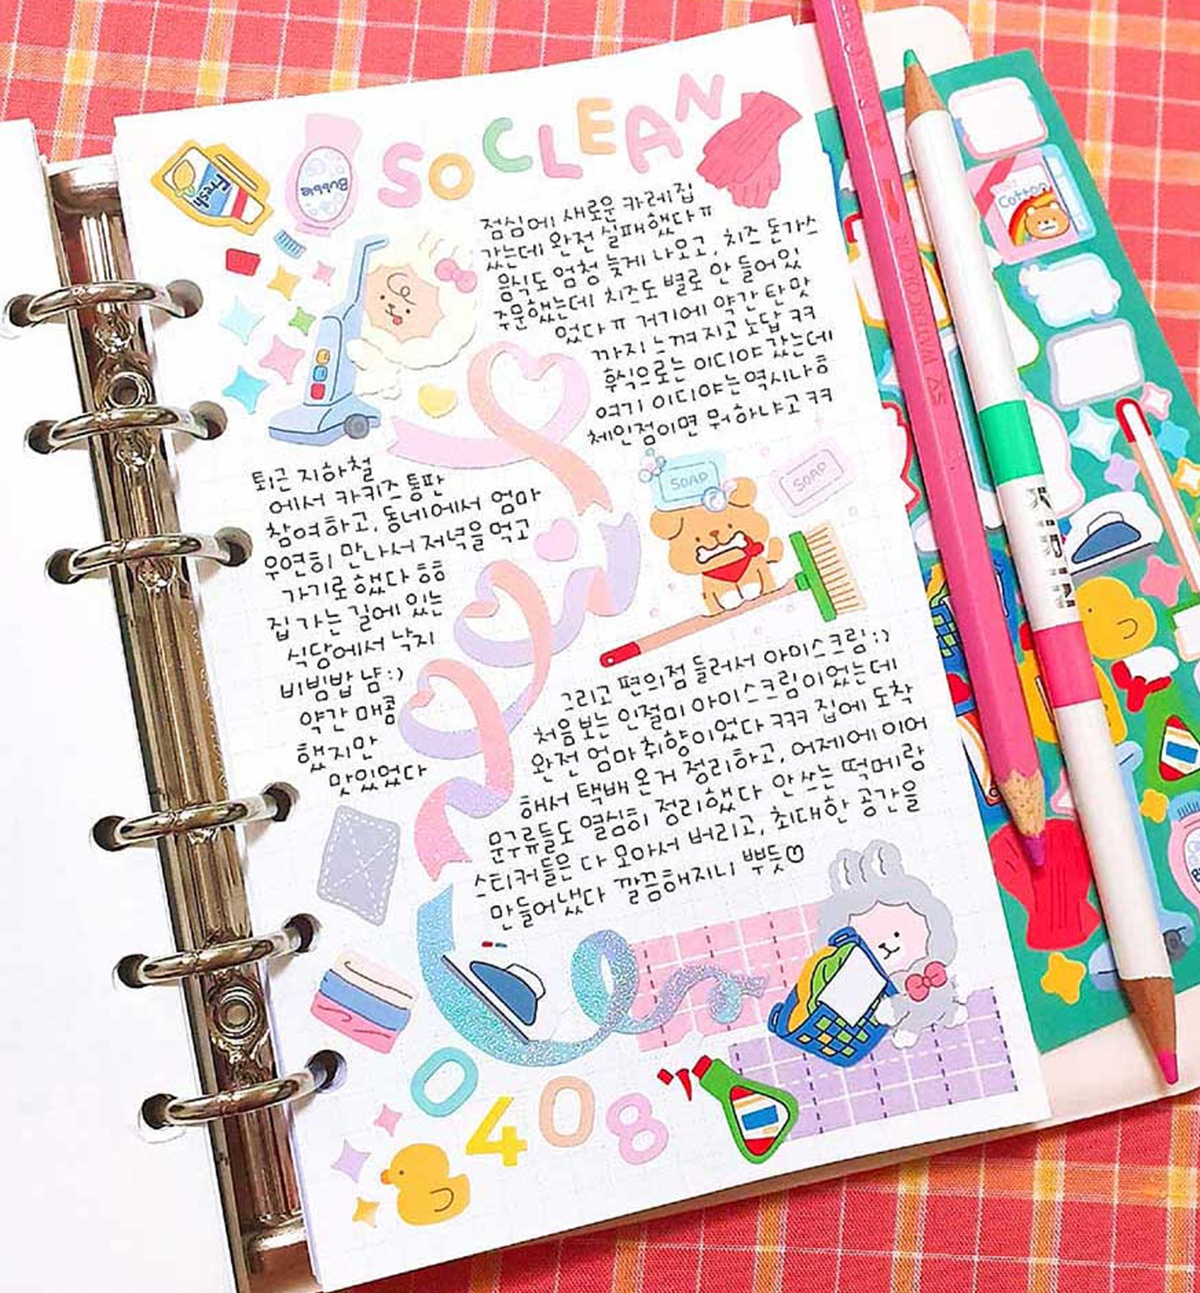 SO CLEAN
Fresh
Bubble
점심에 새로운 카레집
갔는데 완전 실패했다ㅠ
음식도 엄청 늦게 나오고, 치즈 돈가스
주문했는데 치즈도 별로 안 들어있
었다ㅠ 거기에 약간 탄맛
까지 느껴지고 노답 ㅋㅋ
후식으로는 이디야 갔는데
여기 이디야는 역시나ㅎ
체인점이면 뭐하냐고 ㅋㅋ
퇴근 지하철
에서 카키즈 통판
참여하고, 동네에서 엄마
우연히 만나서 저녁을 먹고
가기로 했다 ㅎㅎ
집 가는 길에 있는
식당에서 낙지
비빔밥 냠:)
약간 매콤
했지만
맛있었다
SOAP
SOAP
그리고 편의점 들러서 아이스크림:)
처음보는 인절미 아이스크림이었는데
완전 엄마취향이었다 ㅋㅋㅋ 집에 도착
해서 택배 온거 정리하고, 어제에 이어
문구류들도 열심히 정리했다 안쓰는 떡메랑
스티커들은 다 모아서 버리고, 최대한 공간을
만들어냈다 깔끔해지니 뿌듯♡
0408
Cotton